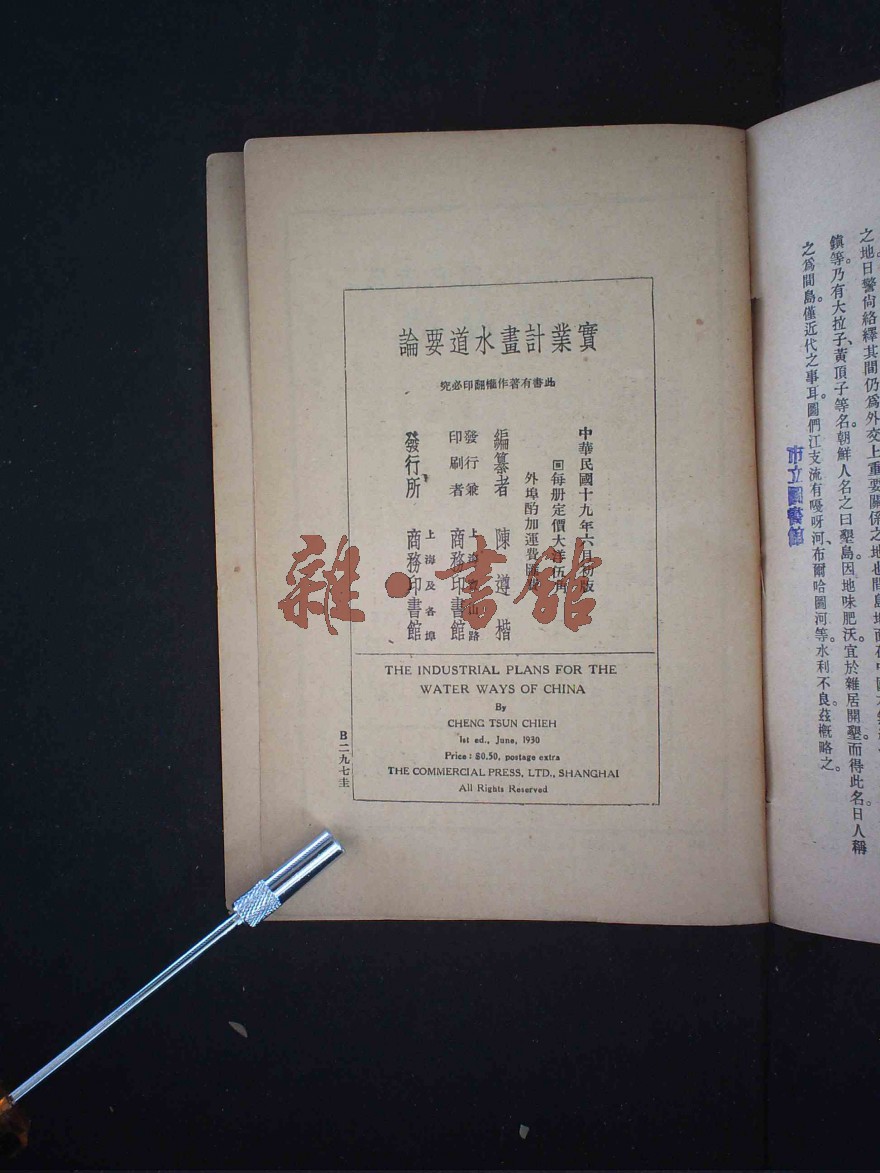 實業計畫水道要論
此書有著作權翻印必究
中華民國十九年六月初版
每册定價大洋伍角
外埠酌加運費匯費
編纂者 陳遵楷
發行兼印刷者 上海寶山路 商務印書館
發行所 上海及各埠 商務印書館
THE INDUSTRIAL PLANS FOR THE
WATER WAYS OF CHINA
By
CHENG TSUN CHIEH
1st ed., June, 1930
Price: $0.50, postage extra
THE COMMERCIAL PRESS, LTD., SHANGHAI
All Rights Reserved
B二九七圭
雜·書館
之地日警尙絡繹其間仍爲外交上重要關係之地也間島地面在中國
鎭等。乃有大拉子、黃頂子等名。朝鮮人名之曰墾島。因地味肥沃。宜於雜居開墾。而得此名。日人稱
之爲間島。僅近代之事耳。圖們江支流有嘎呀河、布爾哈圖河等。水利不良。茲槪略之。
市立圖書館